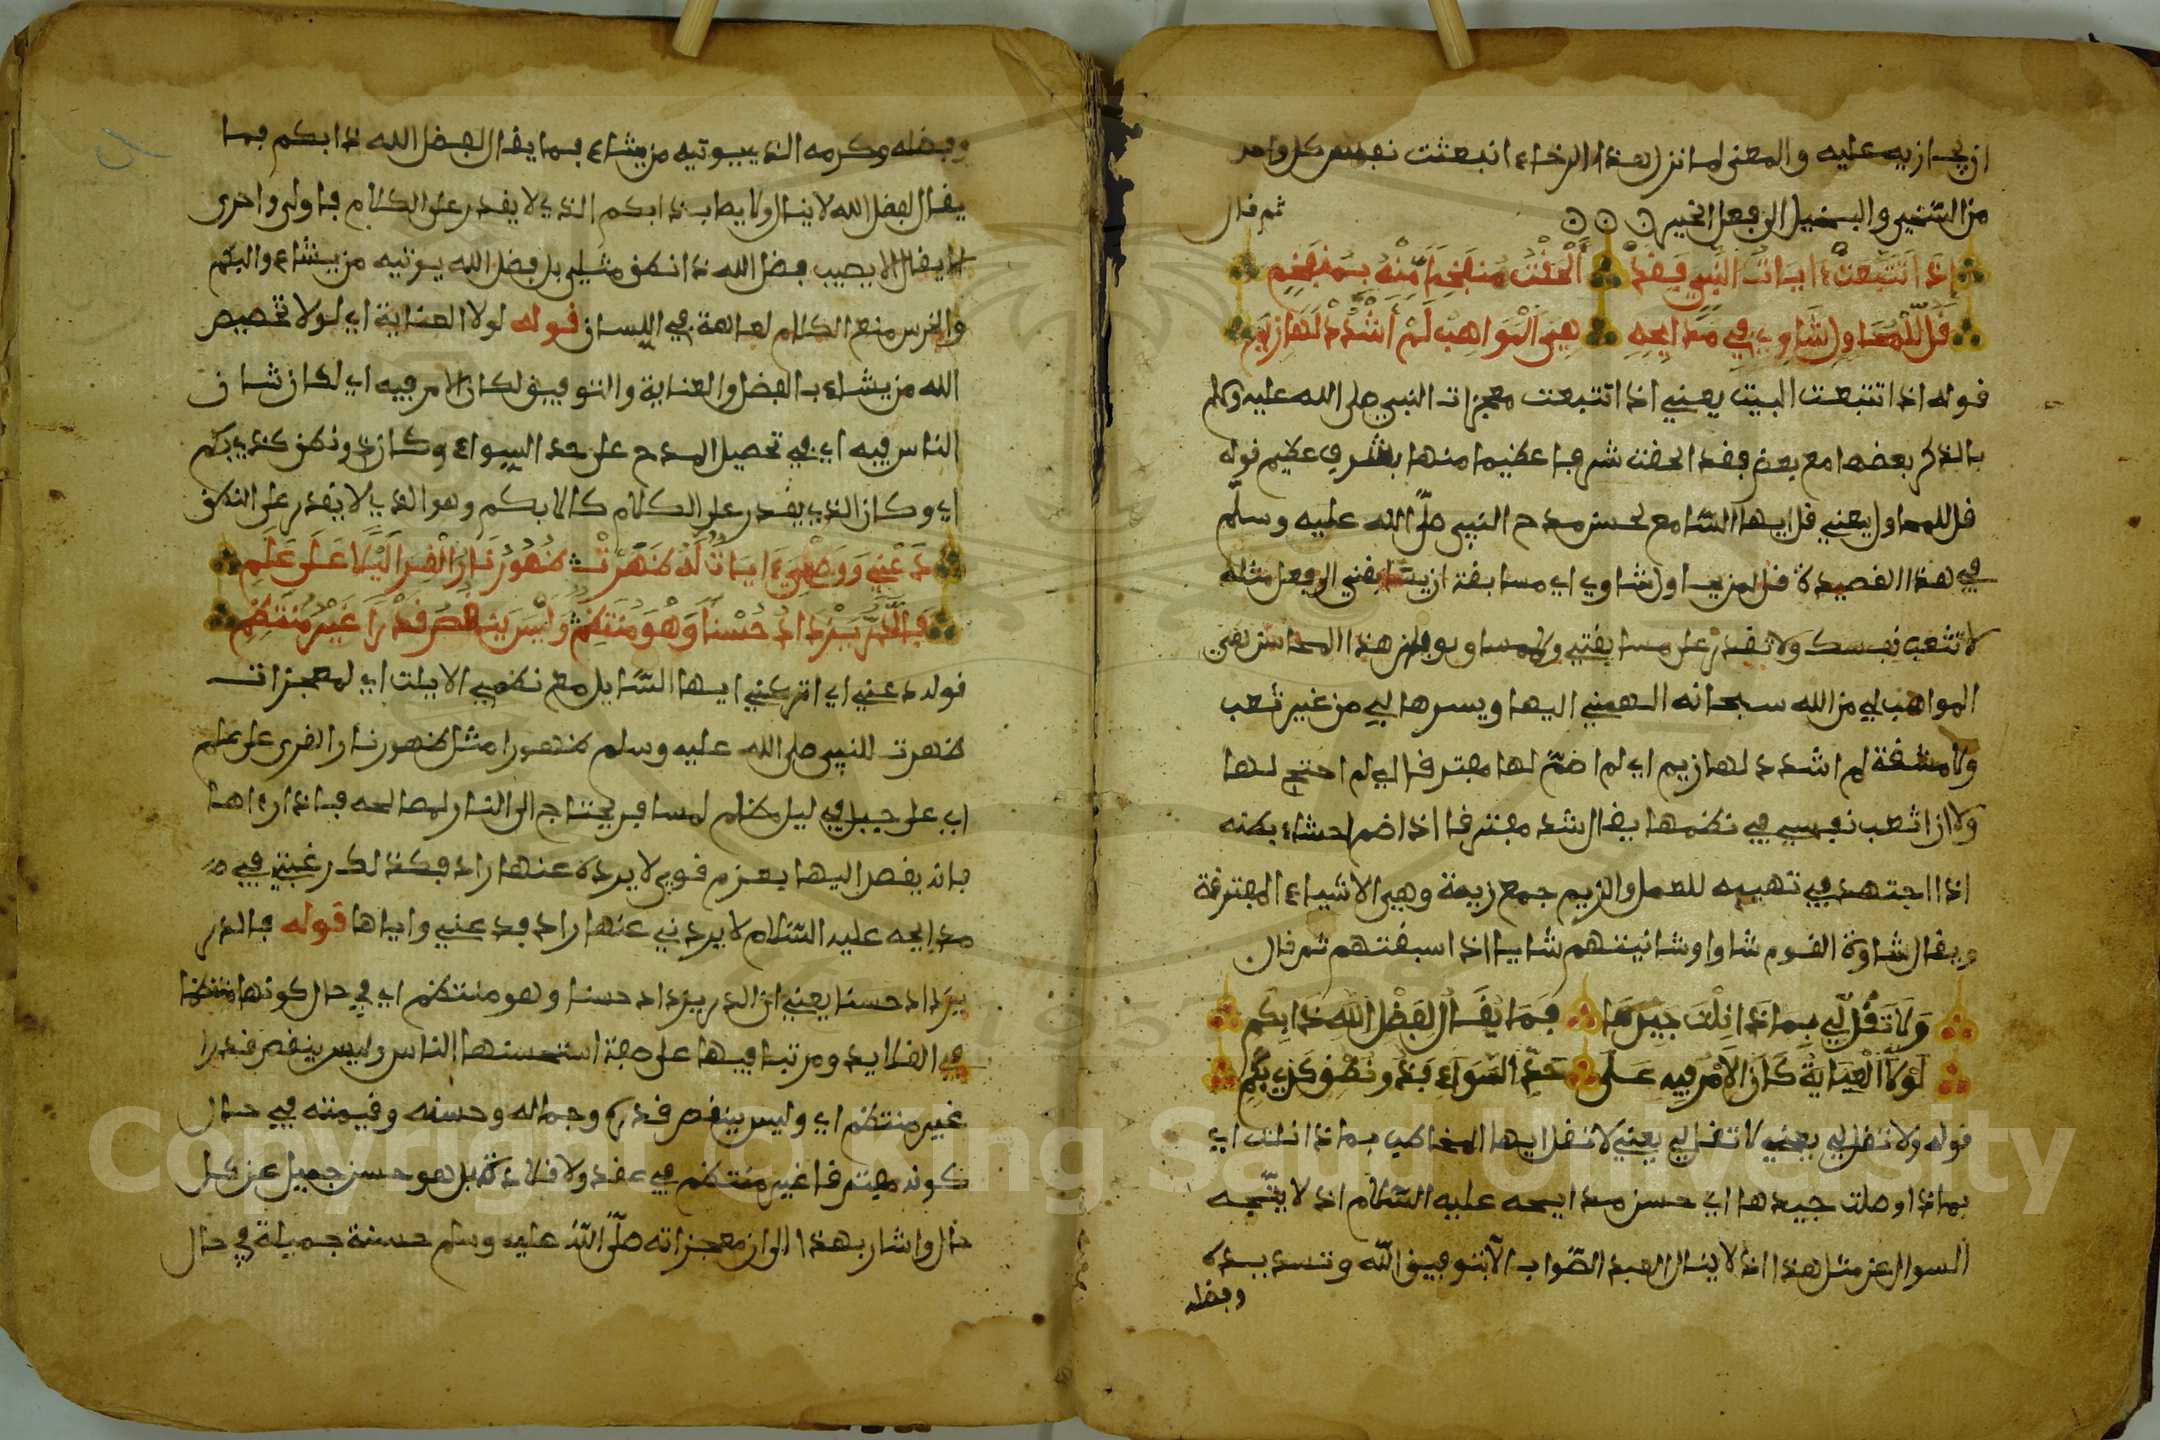 ان يجازيه عليه والمعنى لما نزل هذا الرخاء انبعثت نفس كل واحد
من السخي والبخيل الى فعل الخير ثم قال
اذا تتبعت ءايات النبي فقد الحقت منفخما منه بمنفخم
قل للمحاول شاوي في مدايحه هي المواهب لم اشدد لها زيم
قوله اذا تتبعت البيت يعني اذا اتتبعت معجزات النبي صلى الله عليه وسلم
بالذكر بعضها مع بعض فقد الحقت شرفا عظيما منها بشرف عظيم قوله
قل للمحاول يعني قل ايها السامع لحسن مدح النبي صلى الله عليه وسلم
في هذا القصيدة قل لمن يحاول شاوي اي مسابقة ان يسابقني الى فعل مثله
لا تتعب نفسك ولا تقدر على مسابقتي هذا المحاسن هي
المواهب لي من الله سبحانه الهمني اليها ويسرها لي من غير تعب
ولا مشقة لم اشدد لها زيم اي لم اضم لها مفترقا اي لم احتج لها
ولا ان اتعب نفسي في نظمها يقال شد مفترقا اذا ضم احشاء بطنه
اذا اجتهد في تهييه للعمل والزيم جمع زيمة وهي الاشياء المفترقة
ويقال شاوة القوم شاوا وشانيتهم شايا اذا اسبقتهم ثم قال
ولا تقل لي بماذا انلت جيدها فما يقال لفضل الله ذا بكم
لولا العناية كان الامر فيه على حد السواء فذو نطق كذي بكم
قوله ولا تقل لي يعني لا تقل لي يعني لا تقل ايها المخاطب بماذا انلت اي
بماذا وصلت جيدها اي حسن مدايحه عليه السلام اذ لا يتجه
السوال عن مثل هذا اذ لا ينال العبد الصواب الا بتوفيق الله وتسديده
وفضله
وفضله وكرمه الذي يوتيه من يشاء فما يقال لفضل الله ذا بكم فما
يقال لفضل الله لا ينال ولا يصاب ذا بكم الذي لا يقدر على الكلام فاولى واحرى
لا يقال لا يصيب فضل الله ذا نطق مثلي بل فضل الله يوتيه من يشاء والبكم
والخرس منع الكلام لعاهة في اللسان قوله لولا العناية اي لولا تخصيص
الله من يشاء بالفضل والعناية والتوفيق لكان الامر فيه اي لكان شان
الناس فيه اي في تحصيل المدح على حد السواء وكان ذو نطق كذي بكم
اي وكان الذي يقدر على الكلام كالابكم وهو الذي لا يقدر على النطق
دعني ووصفي ءايات له ظهرت ظهور نار القرى ليلا على علم
فالدر يزداد حسنا وهو منتظم وليس ينقص قدرا غير منتظم
قوله دعني اي اتركني ايها السايل مع نظمي الايات اي لمعجزات
ظهرت للنبي صلى الله عليه وسلم ظهورا مثل ظهور نار القرى على علم
اي على جبل في ليل مظلم لمسافر يحتاج الى النار لمصالحه فاذا رءاها
فانه يقصر اليها بعزم قوي لا يرده عنها راد فكذلك رغبتي في
مدايحه عليه السلام لا يردني عنها راد فدعني واياها قوله فالدر
يزداد حسنا يعني ان الدر يزداد حسنا وهو منتظم اي في حال كونها منتظما
في القلايد ومرتبا فيها على صفة استحسنها الناس وليس ينقص قدرا
غير منتظم اي وليس ينقص قدره وجماله وحسنه وقيمته في حال
كونه مفترقا غير منتظم في عقد ولا قلادة بل هو حسن جميل على كل
حال واشار بهذا الى ان معجزاته صلى الله عليه وسلم حسنة جميلة في حال
Copyright © King Saud University